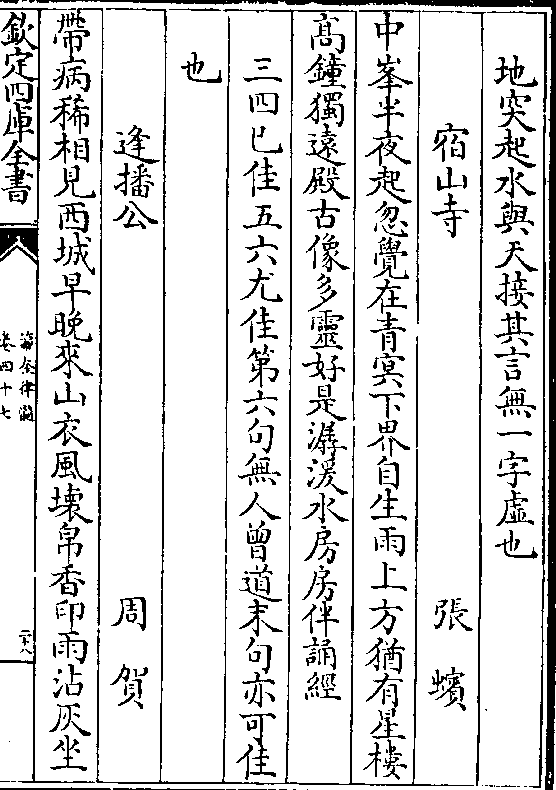 地突起水與天接其言無一字虛也
宿山寺　張蠙
中峯半夜起忽覺在青冥下界自生雨上方猶有星樓
高鐘獨遠殿古像多靈好是潺湲水房房伴誦經
三四已佳五六尤佳第六句無人曾道末句亦可佳
也
逢播公　周賀
帶病稀相見西城早晚來山衣風壊帛香印雨沾灰坐
欽定四庫全書
卷四十七
二十八